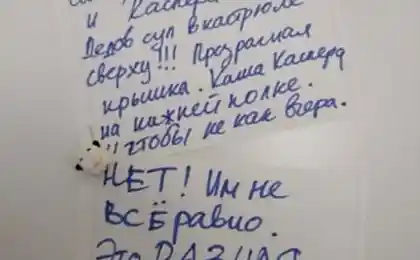 и Каспера
Дедов суп в кастрюле
сверху!!! Прозрачная
крышка. Каша Каспера
на нижней полке.
чтобы не как вчера.
НЕТ! Им не
ВСЁ равно.
Это